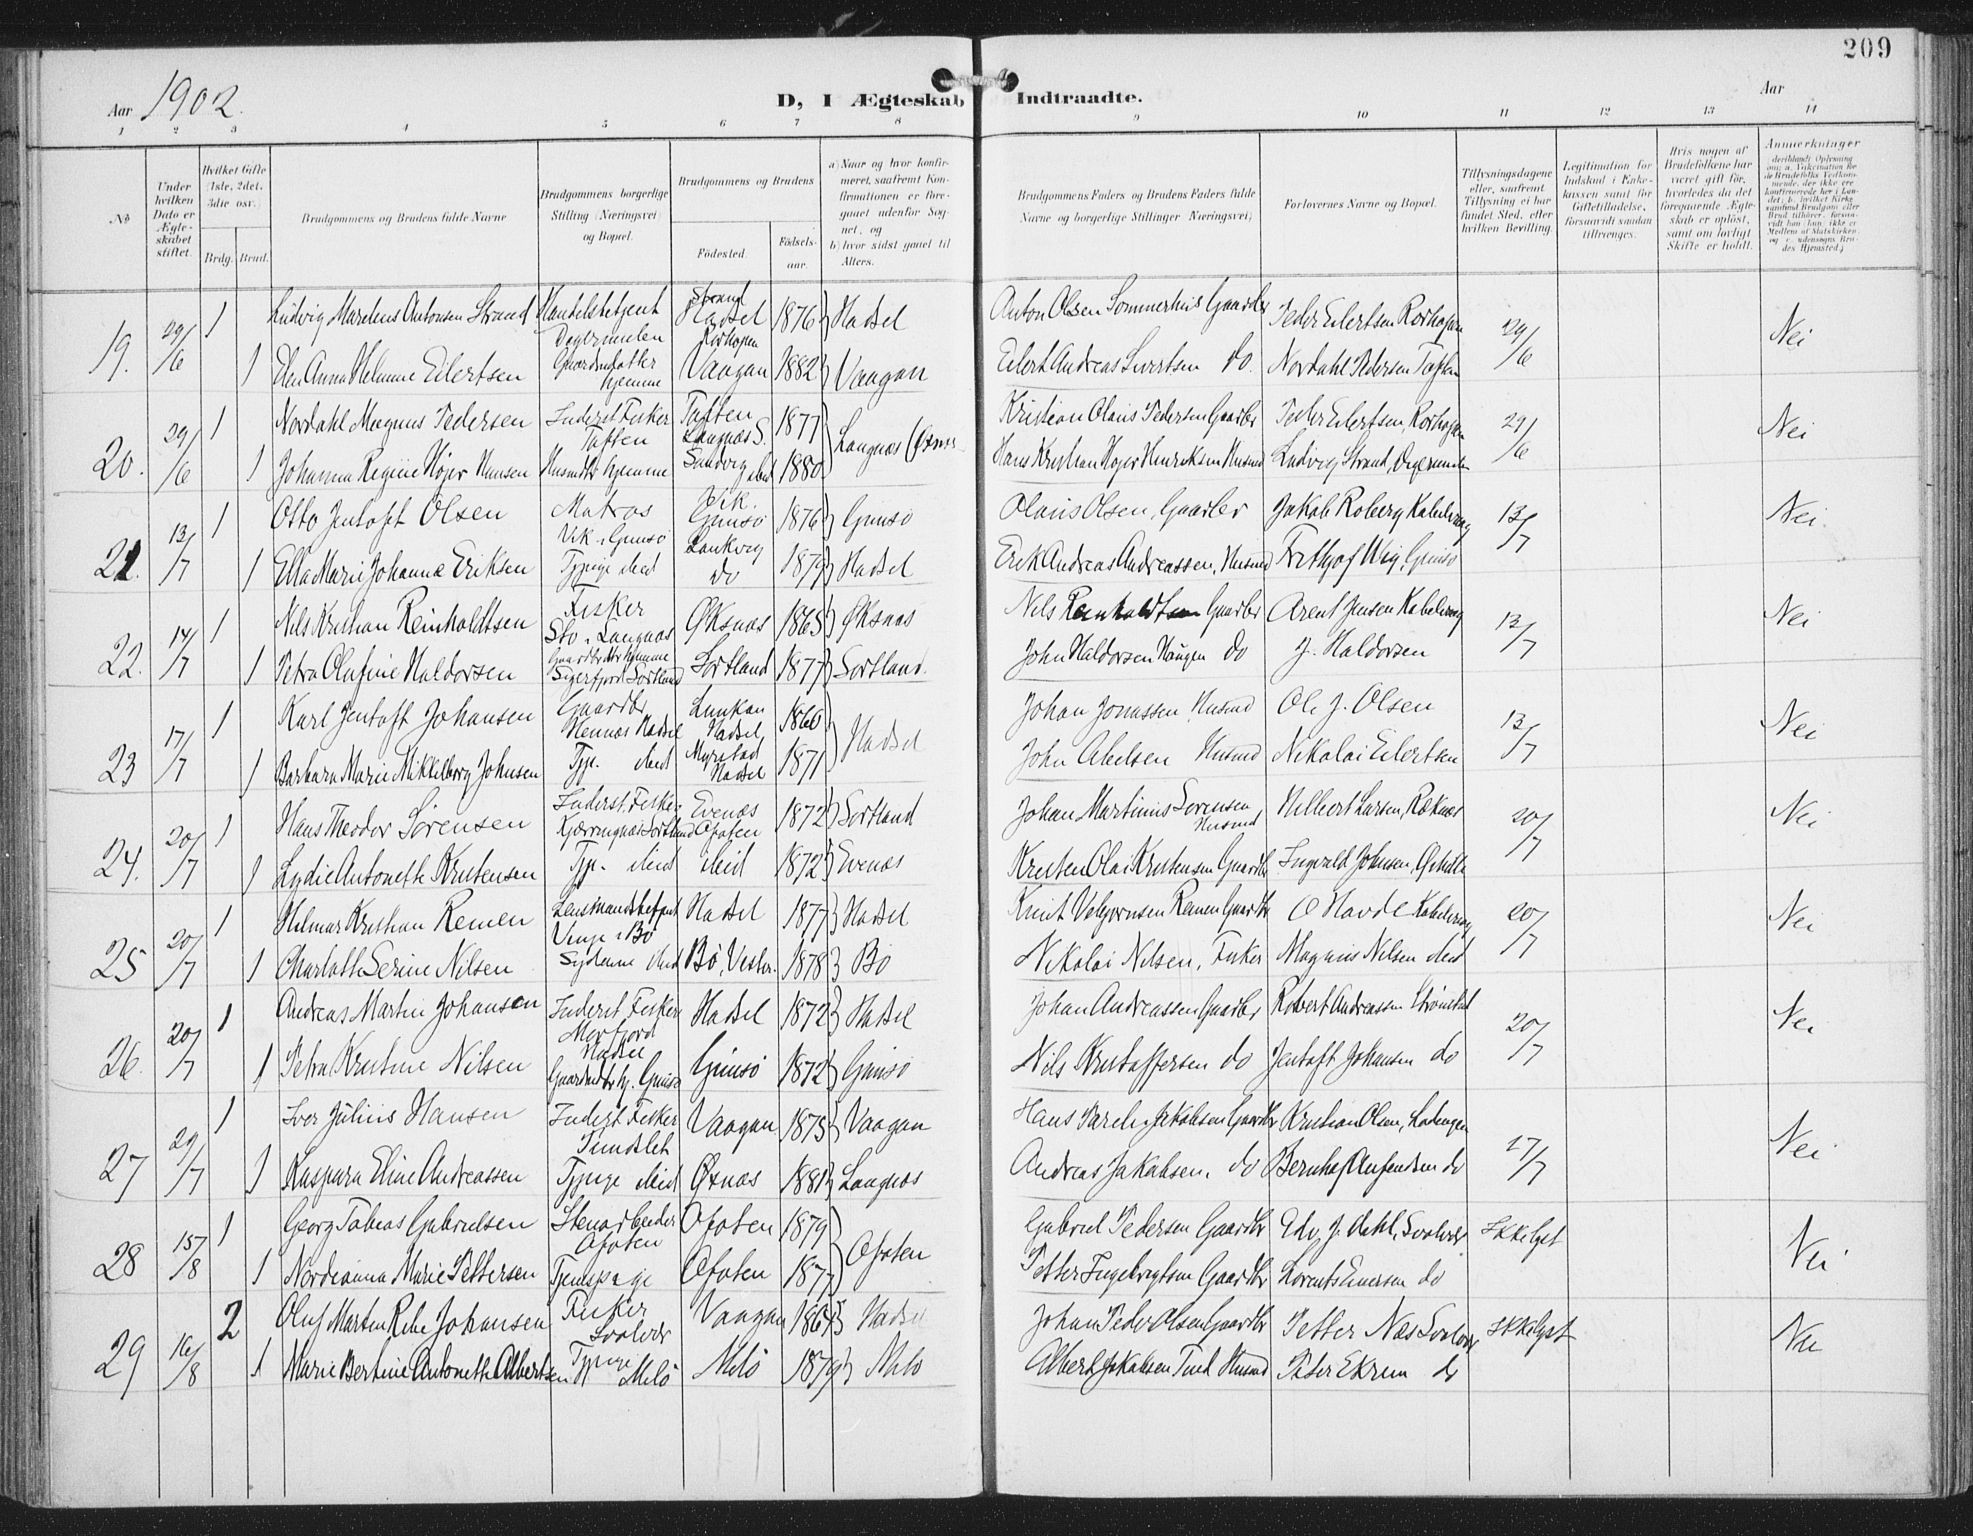 209
Aar 1902.
D, I Ægteskab Indtraadte.
Aar
1 2 3 4 5 6 7 8 9 10 11 12 13 14
No
Under hvilken Dato er Ægteskabet stiftet.
Hvilket Gifte 1ste, 2det, 3die osv.
Brdg. Brud.
Brudgommens og Brudens fulde Navne
Brudgommens borgerlige Stilling (Næringsvei) og Bopæl.
Brudgommens og Brudens
Födested.
Födsels-aar.
a) Naar og hvor konfirmeret, saafremt Konfirmationen er foregaaet udenfor Sognet, og
b) hvor sidst gaaet til Alters.
Brudgommens Faders og Brudens Faders fulde Navne og borgerlige Stillinger (Næringsvei)
Forlovernes Navne og Bopæl.
Tillysningsdagene eller, saafremt Tillysning ei har fundet Sted, efter hvilken Bevilling.
Legitimation for Indskud i Enkekassen samt for Giftetilladelse, forsaavidt saadan tiltrænges.
Hvis nogen af Brudefolkene har været gift før, hvorledes da det foregaaende Ægteskab er opløst, samt om lovligt Skifte er holdt.
Anmerkninger
19. 29/6 1 Ludvig Mareleus Antonsen Strand Handelsbetjent Digermulen Strand Hadsel 1876 Hadsel Anton Olsen Sommerhus Gaardbr Peder Eilertsen Rorhopen 29/6 Nei
1 Elen Anna Helmine Eilertsen hjemme Rorhopen Vaagan 1882 Vaagan Eilert Andreas Sivertsen do. Nordahl Pedersen Taften
20. 29/6 1 Nordahl Magnus Pedersen Inderst Fisker Taften Taften Langnæs S. 1877 Langnæs Kristian Olaus Pedersen Gaardbr Peder Eilertsen Rorhopen 29/6 Nei
1 Johanna Regine Højer Hansen hjemme Sandvig 1880 Hans Kristian Højer Henriksen Husmd Ludvig Strand, Digermulen
21. 13/7 1 Otto Jentoft Olsen Matros Vik i Gimsø Vik Gimsø 1876 Gimsø Olaus Olsen, Gaardbr Jakob Roberg Kabelvaag 13/7 Nei.
1 Ella Marie Johanna Eriksen Tjpige ibid Laukvig do 1879 Hadsel Erik Andreas Andreassen, Husmd Frithjof Wig, Gimsø
22. 14/7 1 Nils Kristian Reinholdtsen Fisker Stø i Langnæs Øksnæs 1865 Øksnæs Nils Reinholdtsen Gaardbr Arent Jensen Kabelvaag 13/7 Nei
1 Petra Olufine Haldorsen Sigerfjord Sortland Sortland 1877 Sortland. John Haldorsen Haugen do J. Haldorsen
23 17/7 1 Karl Jentoft Johansen Gaardbr Hennæs Hadsel Lunkan Hadsel 1866 Hadsel Johan Jonassen Husmd Ole J. Olsen 13/7 Nei
1 Barbara Marie Mikkelborg Johnsen Tjp. ibid Myrstad Hadsel 1871 John Abelsen Husmd Nikolai Eilertsen
24. 20/7 1 Hans Theodor Sørensen Inderst Fisker Kjerringnæs Sortland Evenæs Ofoten 1872 Sortland Johan Martinus Sørensen Husmd Hilbert Larsen, Røknæs 20/7 Nei
1 Lydie Antonette Kristensen Tjp. ibid ibid 1872 Evenæs Kristen Olai Kristensen Gaardbr Ingvald Johnsen,
25 20/7 1 Hilmar Kristian Remen Lensmandsbetjent Vinje i Bø Hadsel 1877 Hadsel Knut Vebjørnsen Remen Gaardbr O Hovde Kabelvaag 20/7 Nei
1 Charlotte Serine Nilsen Sypige ibid Bø, Vester. 1878 Bø Nikolai Nilsen, Fisker Magnus Nilsen ibid
26. 20/7 1 Andreas Martin Johansen Inderst Fisker Morfjord Hadsel Hadsel 1872 Hadsel Johan Andreassen Gaardbr Robert Andreassen Strømstad 20/7 Nei
1 Petra Kristine Nilsen Gimsø Gimsø 1872 Gimsø Nils Kristoffersen do Jentoft Johansen do
27 29/7 1 Iver Julius Hansen Inderst Fisker Tundslet Vaagan 1875 Vaagan Hans Parelius Jakobsen Gaardbr Kristian Olsen, Lødingen 27/7 Nei
1 Kaspara Eline Andreassen Tjpige ibid Øxnæs 1881 Langnæs Andreas Jakobsen, do Bernhof Amundsen do
28 15/8 1 Georg Tobias Gabrielsen Stenarbeider Ofoten Ofoten 1879 Ofoten Gabriel Pedersen Gaardbr Edv. J. Dahl, Svolvær Nei
1 Nordianna Marie Pettersen Tjenstpige Ofoten 1877 Petter Ingebrigtsen Gaardbr Lorents Einersen do
29 16/8 2 Oluf Martin Rebe Johansen Fisker Svolvær Vaagan Hadsel Johan Peder Olsen Gaardbr Petter Næs Svolvær Nei
1 Marie Bertine Antonette Albertsen Tjpige Melø Melø 1879 Melø Albert Jakobsen Husmd Peter Ekrem do